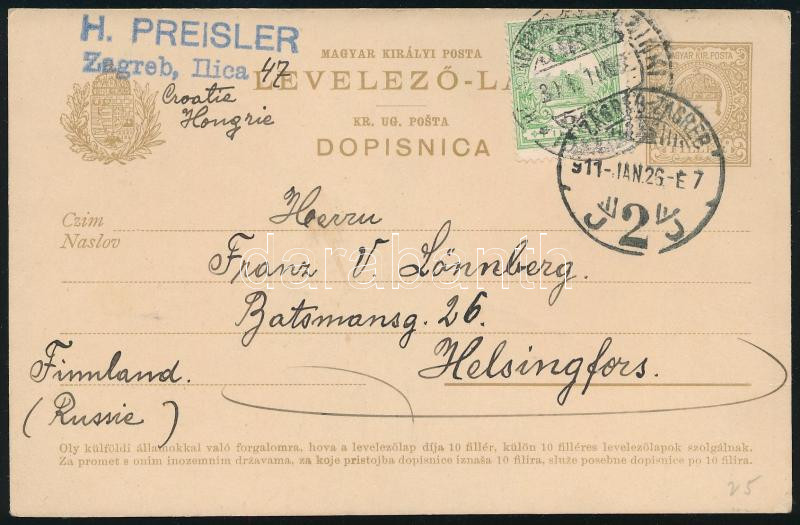 H. PREISLER
Zagreb, Ilica 47
Croatie
Hongrie
MAGYAR KIRÁLYI POSTA
LEVELEZŐ-LA
KR. UG. POŠTA
DOPISNICA
MAGYAR KIR. POSTA
ZÁGRÁB-ZAGREB
911-JAN.26-E 7
2
Czim
Naslov
Herrn
Franz V. Lönnberg.
Batsmansg. 26.
Helsingfors.
Finnland.
(Russie)
Oly külföldi államokkal való forgalomra, hova a levelezőlap díja 10 fillér, külön 10 filléres levelezőlapok szolgálnak.
Za promet s onim inozemnim državama, za koje pristojba dopisnice iznaša 10 filira, služe posebne dopisnice po 10 filira.
25
darabanth